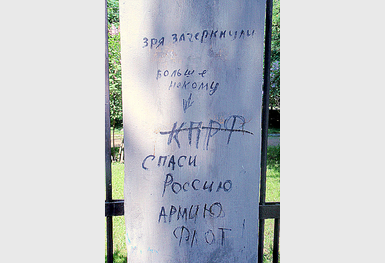 ЗРЯ ЗАЧЕРКНУЛИ
БОЛЬШЕ
НЕКОМУ
КПРФ
СПАСИ
РОССИЮ
АРМИЮ
ФЛОТ